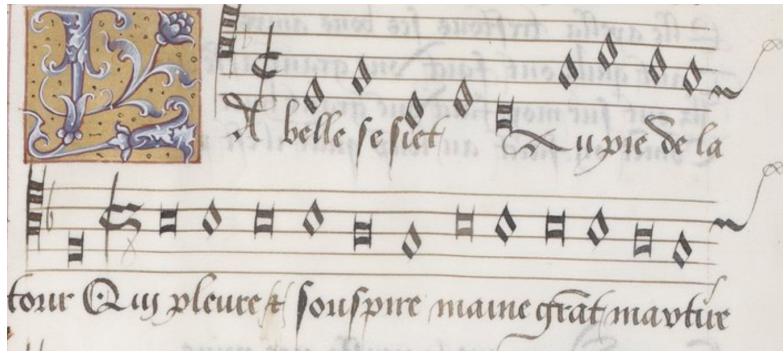 LA belle se siet Au pie de la
tour Qui pleure et souspire maine grāt martire